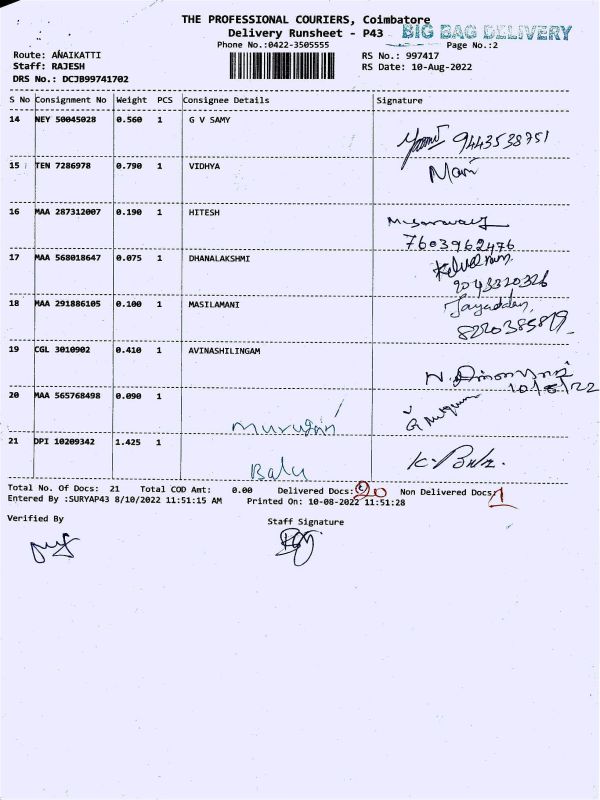 THE PROFESSIONAL COURIERS, Coimbatore
Delivery Runsheet - P43
BIG BAG DELIVERY
Phone No.:0422-3505555
Page No.:2
Route: ANAIKATTI
RS No.: 997417
Staff: RAJESH
RS Date: 10-Aug-2022
DRS No.: DCJB99741702
S No Consignment No Weight PCS Consignee Details Signature
14 NEY 50045028 0.560 1 G V SAMY
9443538751
15 TEN 7286978 0.790 1 VIDHYA
Mani
16 MAA 287312007 0.190 1 HITESH
7603962476
17 MAA 568018647 0.075 1 DHANALAKSHMI
9043320326
18 MAA 291886105 0.100 1 MASILAMANI
8220385819
19 CGL 3010902 0.410 1 AVINASHILINGAM
10/8/22
20 MAA 565768498 0.090 1
Murugan
21 DPI 10209342 1.425 1
Balu
Total No. Of Docs: 21 Total COD Amt: 0.00 Delivered Docs: 20 Non Delivered Docs: 1
Entered By :SURYAP43 8/10/2022 11:51:15 AM Printed On: 10-08-2022 11:51:28
Verified By
Staff Signature